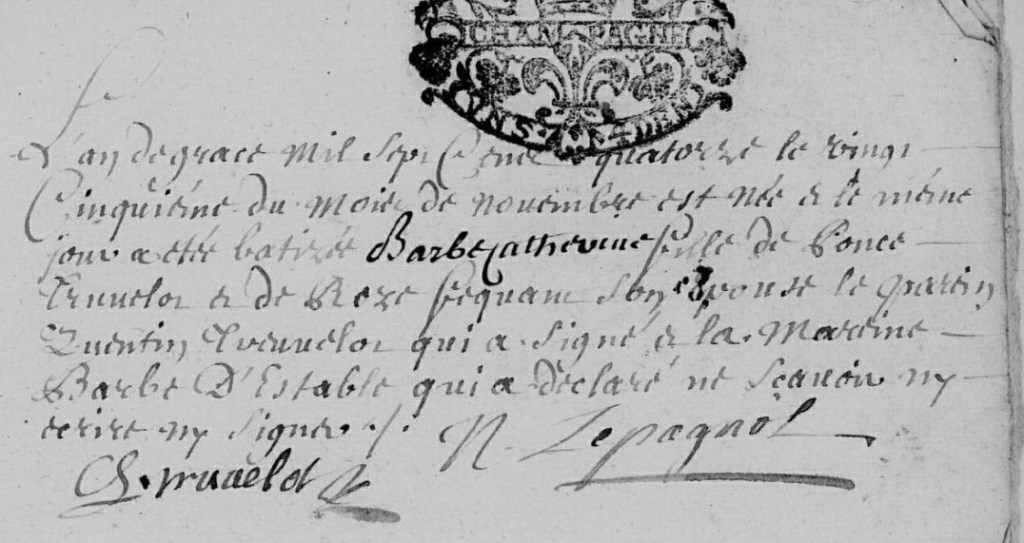 CHAMPAGNE
DEN
L'an de grace mil sept Cent quatorze le vingt
Cinquiéme du mois de novembre est née et le méme
jour a etée batizée Barbe Catherinne fille de Ponce
Truvelot et de Roze son epouse le parein
Quentin Truvelot qui a signé et la mareine
Barbe D'Estable qui a declaré ne scavoir ny
ecrire ny signer ./.
N. Lepagnol
Q. truuelot